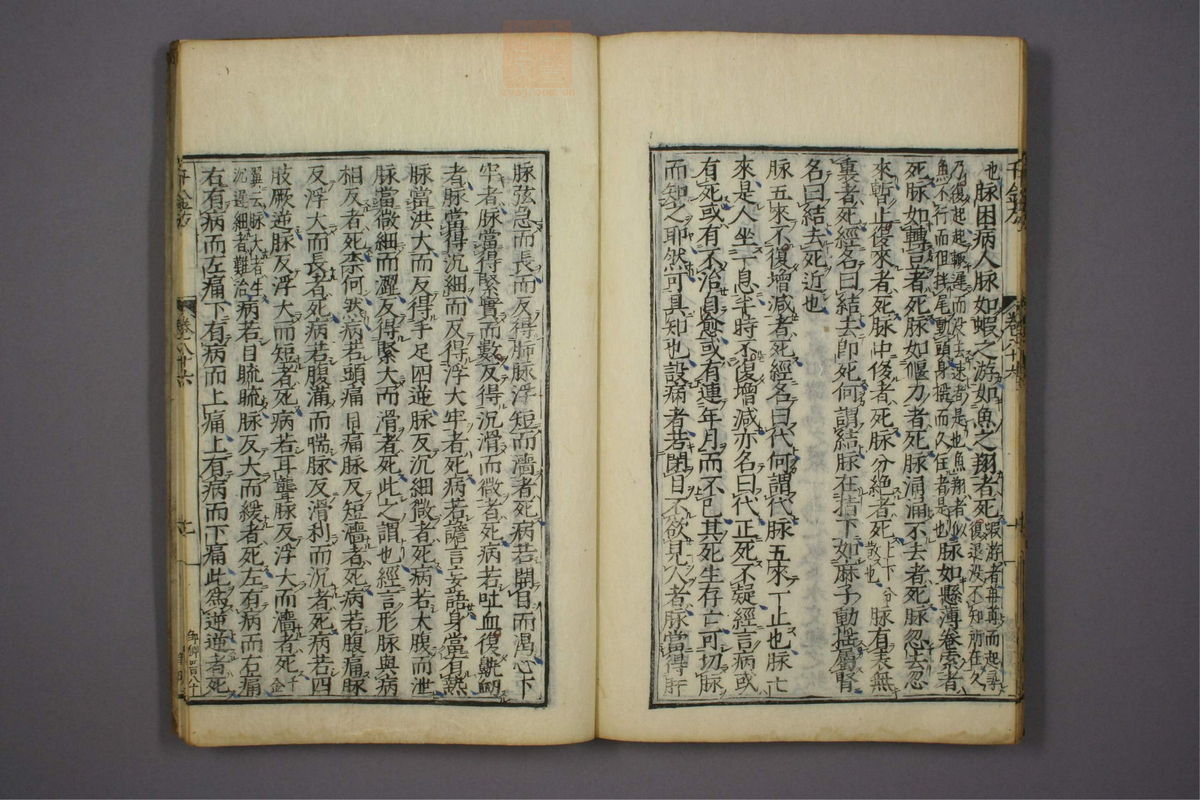 千金方
卷第二十八
也脉困病人脉如蝦之游如魚之翔者死蝦游者苒苒而起尋復退没不知所在久
乃復起起輒遲而没去速者是也魚翔者似魚不行而但掉尾動頭身搖而久住者是也脉如懸薄卷索者
死脉如轉豆者死脉如偃刀者死脉涌涌不去者死脉忽去忽
來暫止復來者死脉中侈者死脉分絕者死上下分散也脉有表無
裏者死經名曰結去即死何謂結脉在指下如麻子動搖屬腎
名曰結去死近也
脉五來不復增減者死經名曰代何謂代脉五來一止也脉七
來是人坐一息半時不復增減亦名曰代正死不疑經言病或
有死或有不治自愈或有連年月而不已其死生存亡可切脉
而知之耶然可具知也設病者若閉目不欲見人者脉當得肝
脉弦急而長而反得肺脉浮短而濇者死病若開目而渴心下
牢者脉當得緊實而數反得沉滑而微者死病若吐血復鼽衂
者脉當得沉細而反得浮大牢者死病若譫言妄語身當有熱
脉當洪大而反得手足四逆脉反沉細微者死病若大腹而泄
脉當微細而濇反得緊大而滑者死此之謂也經言形脉與病
相反者死柰何然病若頭痛目痛脉反短濇者死病若腹痛脉
反浮大而長者死病若腹滿而喘脉反滑利而沉者死病若四
肢厥逆脉反浮大而短者死病若耳聾脉反浮大而濇者死千金
翼云脉大者生沉遲細者難治病若目䀮䀮脉反大而緩者死左有病而右痛
右有病而左痛下有病而上痛上有病而下痛此為逆逆者死
千金方
卷二十八